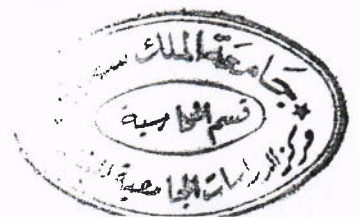 جامعة الملك
قسم المحاسبة
مركز الدراسات الجامعية